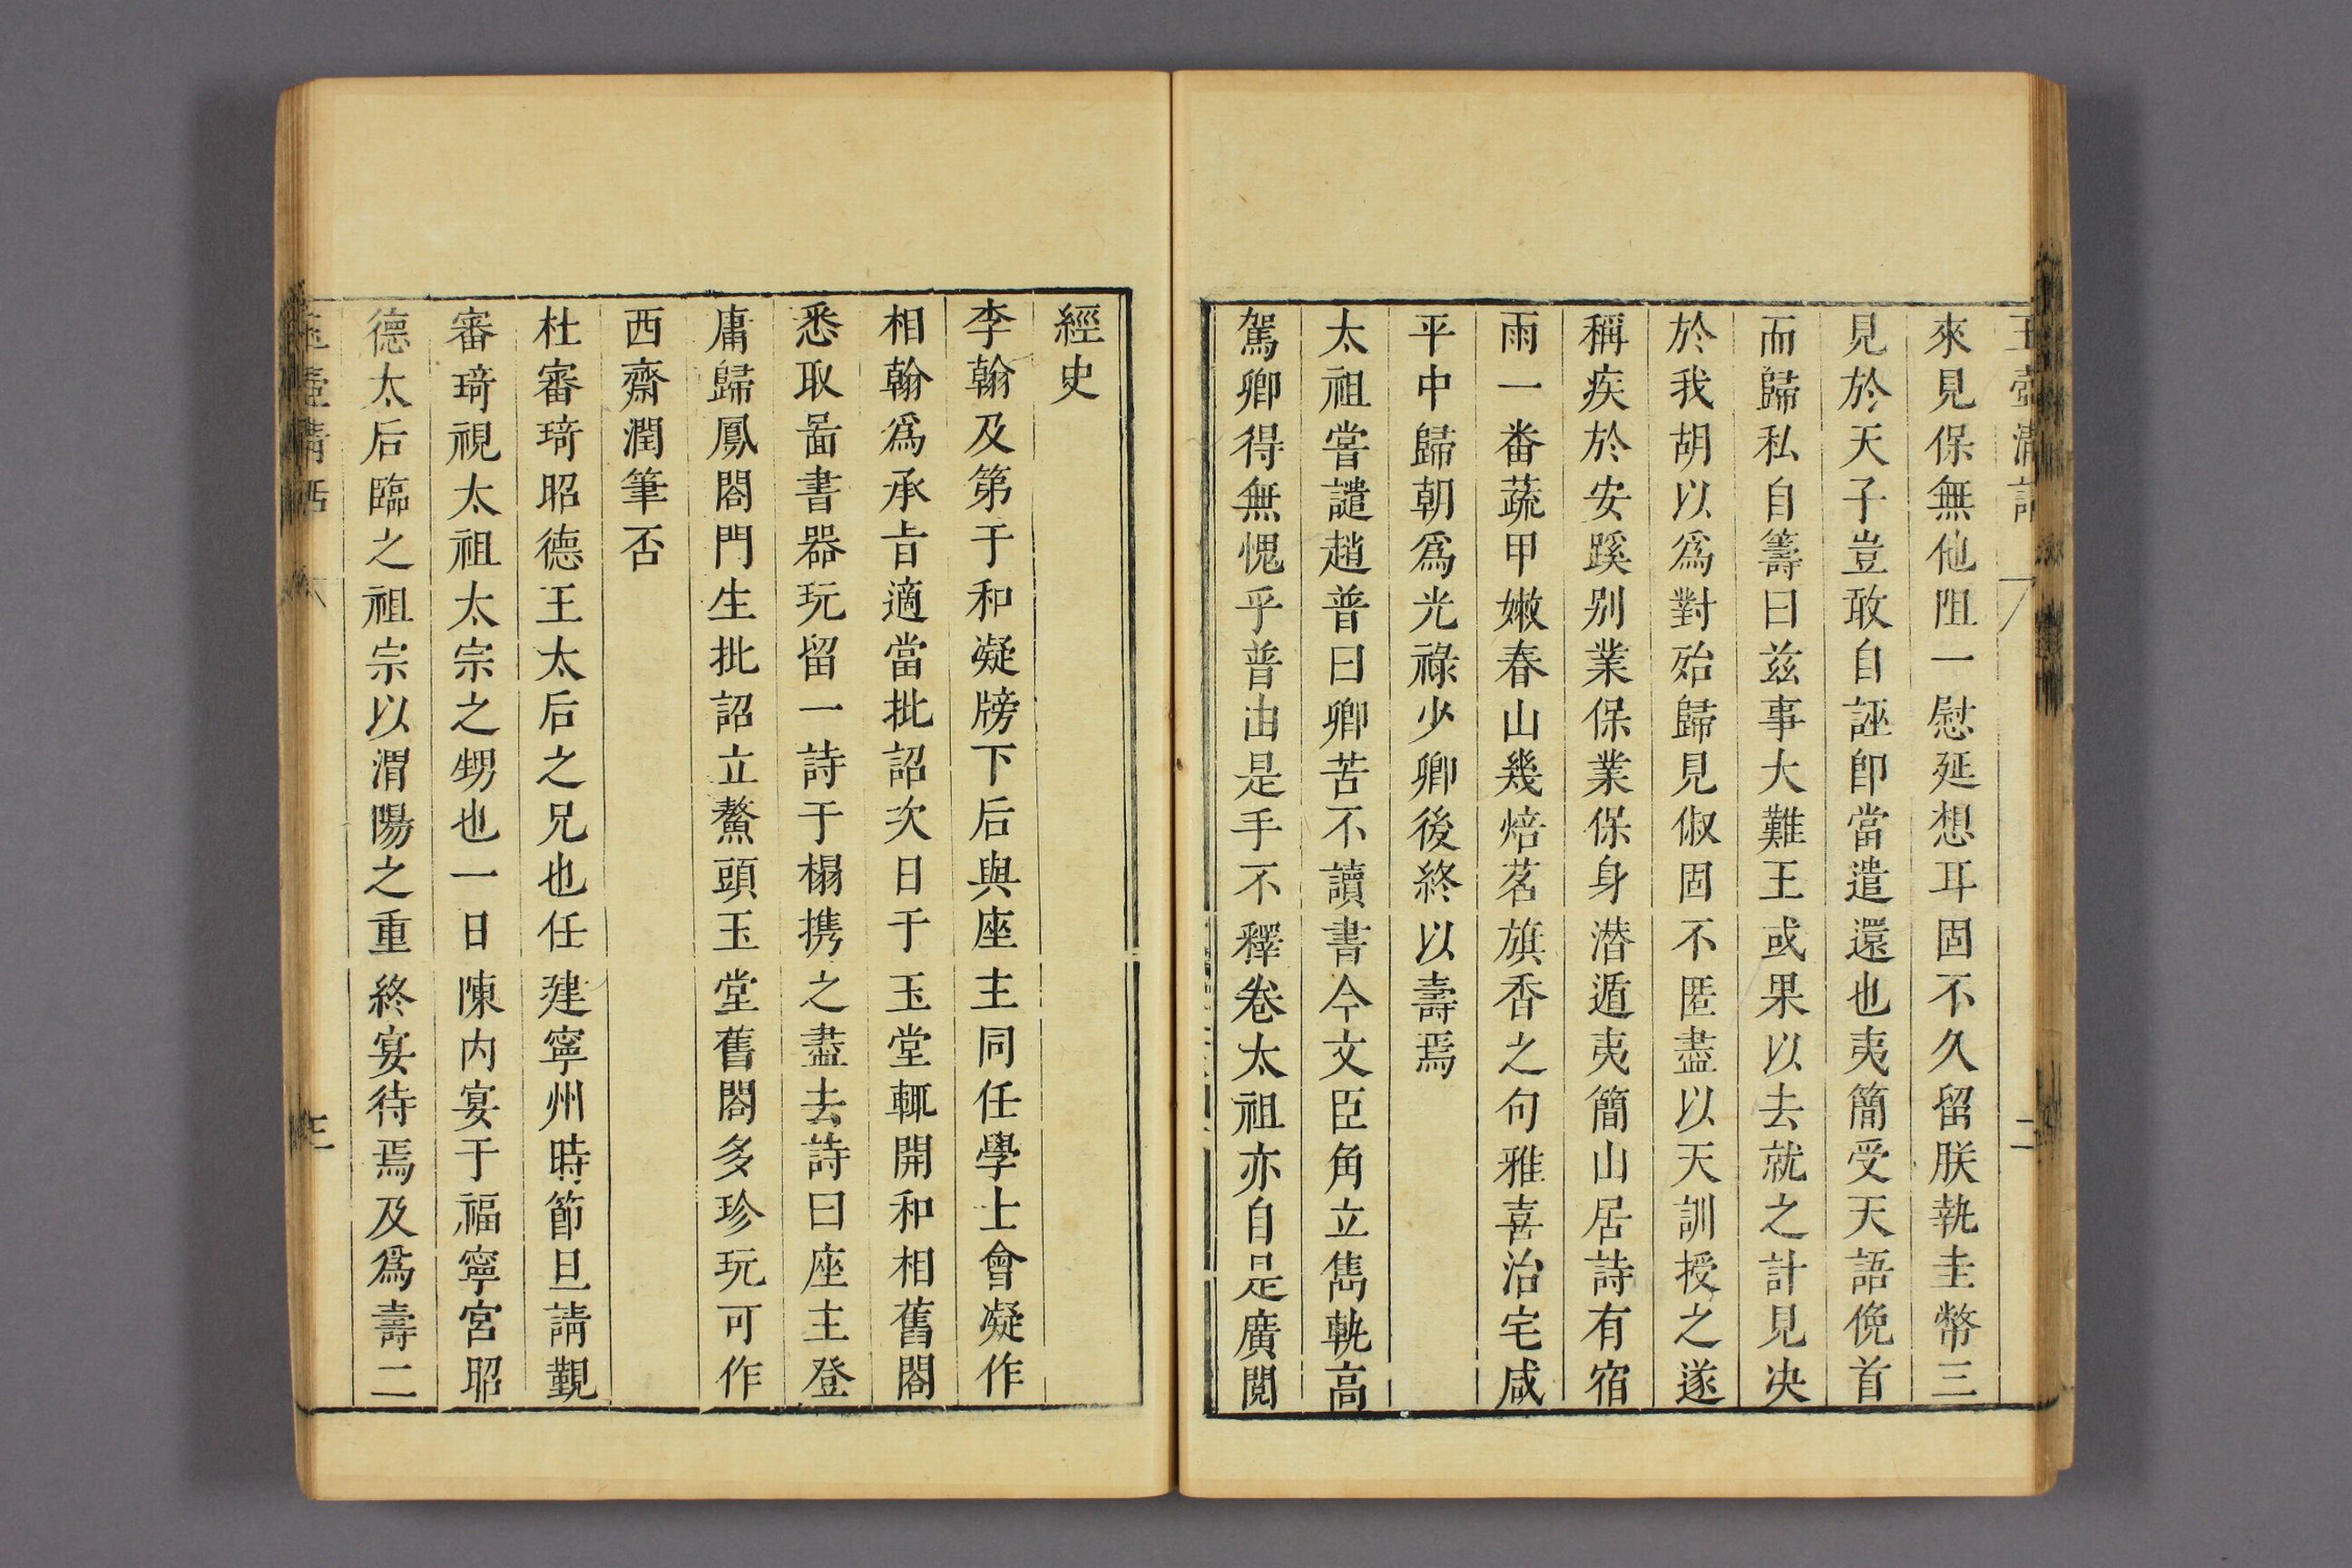 來見保無他阻一慰延想耳固不久留朕執圭幣三
見於天子豈敢自誣即當遣還也夷簡受天語俛首
而歸私自籌曰玆事大難王或果以去就之計見决
於我胡以爲對殆歸見俶固不匿盡以天訓授之遂
稱疾於安蹊别業保業保身潜遁夷簡山居詩有宿
雨一番蔬甲嫩春山幾焙茗旗香之句雅喜治宅咸
平中歸朝爲光祿少卿後終以壽焉
太祖嘗譴趙普曰卿苦不讀書今文臣角立雋軌高
駕卿得無愧乎普由是手不釋卷太祖亦自是廣閱
經史
李翰及第于和凝牓下后與座主同任學士會凝作
相翰爲承旨適當批詔次日于玉堂輒開和相舊閤
悉取啚書器玩留一詩于榻携之盡去詩曰座主登
庸歸鳳閤門生批詔立鰲頭玉堂舊閤多珍玩可作
西齋潤筆否
杜審琦昭德王太后之兄也任建寧州時節旦請覲
審琦視太祖太宗之甥也一日陳内宴于福寧宮昭
德太后臨之祖宗以渭陽之重終宴待焉及爲壽二
三